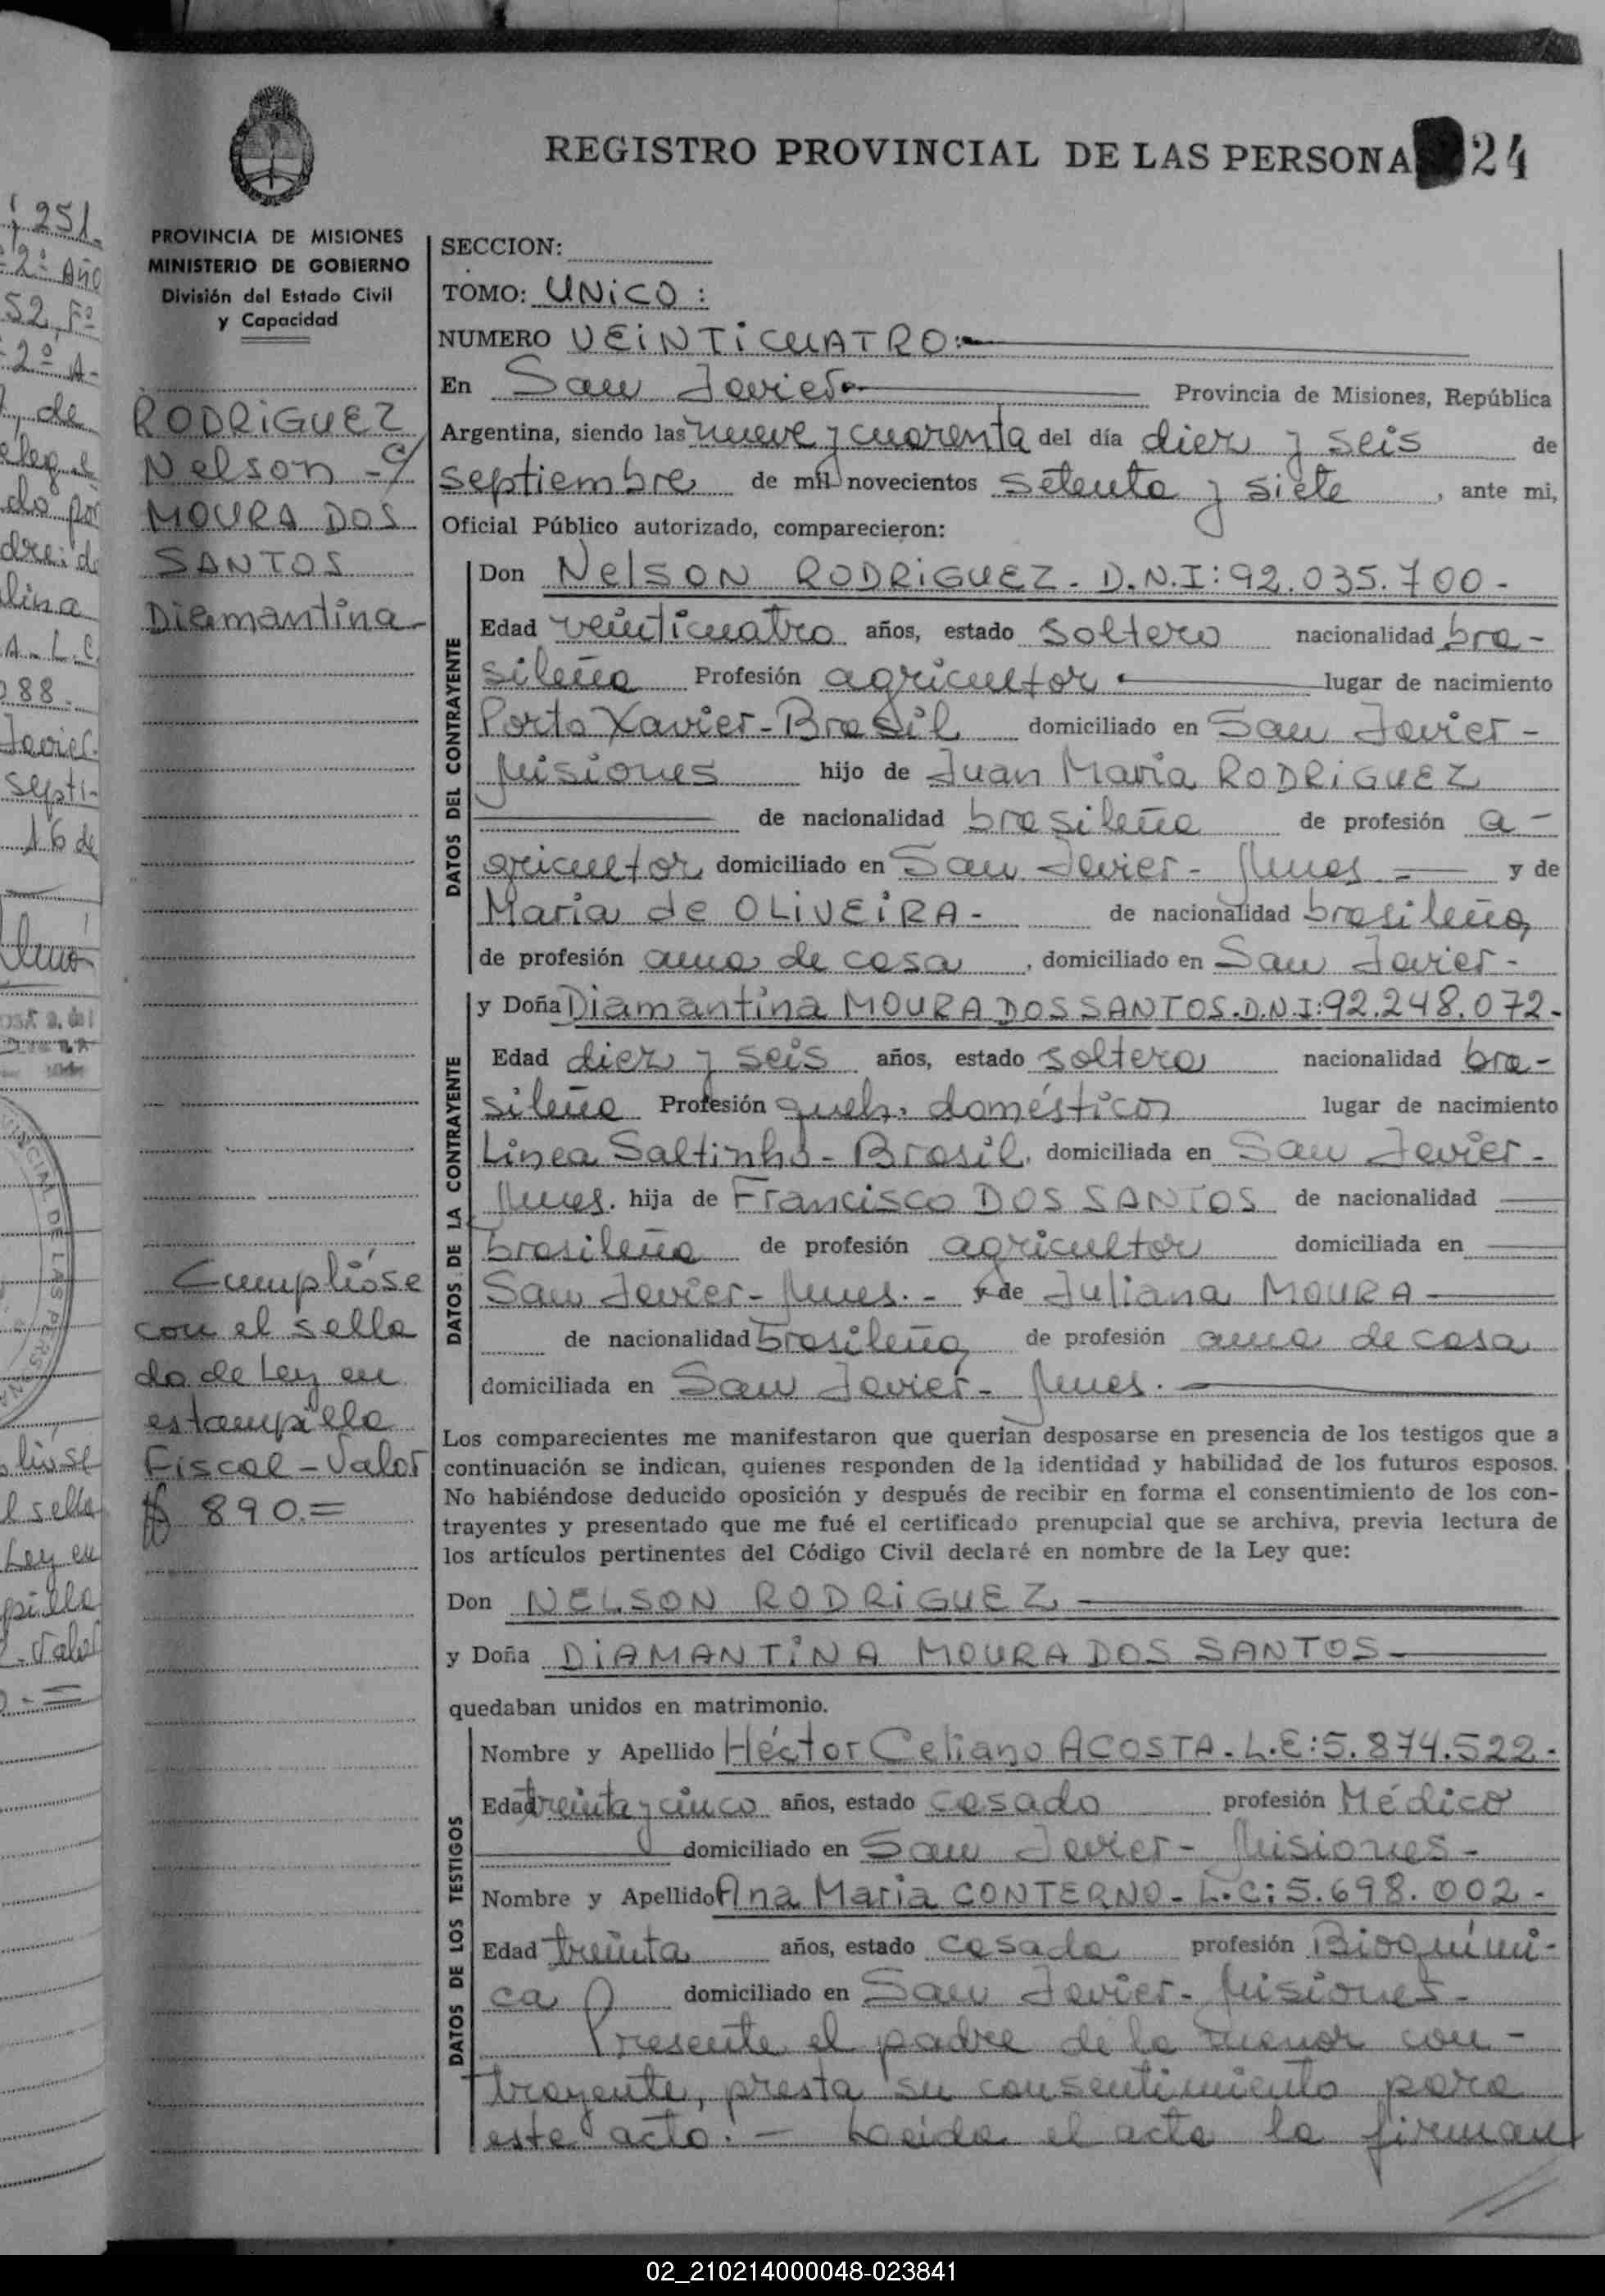 REGISTRO PROVINCIAL DE LAS PERSONA 24
PROVINCIA DE MISIONES
MINISTERIO DE GOBIERNO
División del Estado Civil
y Capacidad
RODRIGUEZ
Nelson - c/
MOURA DOS
SANTOS
Diamantina -
Cumplióse
con el sella
do de Ley en
estampilla
Fiscal - Valor
$ 890.=
SECCION:
TOMO: UNICO:
NUMERO VEINTICUATRO:-
En San Javier Provincia de Misiones, República
Argentina, siendo las nueve y cuarenta del día diez y seis de
septiembre de mil novecientos setenta y siete, ante mi,
Oficial Público autorizado, comparecieron:
DATOS DEL CONTRAYENTE
Don Nelson RODRIGUEZ - D.N.I: 92.035.700 -
Edad veinticuatro años, estado soltero nacionalidad bra-
sileña Profesión agricultor lugar de nacimiento
Porto Xavier - Brasil domiciliado en San Javier -
Misiones hijo de Juan Maria RODRIGUEZ
de nacionalidad brasileña de profesión a-
gricultor domiciliado en San Javier - Mnes - y de
Maria de OLIVEIRA - de nacionalidad brasileña,
de profesión ama de casa, domiciliado en San Javier -
DATOS DE LA CONTRAYENTE
y Doña Diamantina MOURA DOS SANTOS. D.N.I: 92.248.072 -
Edad diez y seis años, estado soltera nacionalidad bra-
sileña Profesión queh. domésticos lugar de nacimiento
Linea Saltinho - Brasil, domiciliada en San Javier -
Mnes. hija de Francisco DOS SANTOS de nacionalidad
brasileña de profesión agricultor domiciliada en
San Javier - Mnes. - y de Juliana MOURA
de nacionalidad brasileña, de profesión ama de casa
domiciliada en San Javier - Mnes.
Los comparecientes me manifestaron que querían desposarse en presencia de los testigos que a
continuación se indican, quienes responden de la identidad y habilidad de los futuros esposos.
No habiéndose deducido oposición y después de recibir en forma el consentimiento de los con-
trayentes y presentado que me fué el certificado prenupcial que se archiva, previa lectura de
los artículos pertinentes del Código Civil declaré en nombre de la Ley que:
Don NELSON RODRIGUEZ
y Doña DIAMANTINA MOURA DOS SANTOS
quedaban unidos en matrimonio.
DATOS DE LOS TESTIGOS
Nombre y Apellido Héctor Celiano ACOSTA - L.E: 5.874.522 -
Edad treinta y cinco años, estado casado profesión Médico
domiciliado en San Javier - Misiones -
Nombre y Apellido Ana Maria CONTERNO - L.C: 5.698.002 -
Edad treinta años, estado casada profesión Bioquími-
ca domiciliado en San Javier - Misiones -
Presente el padre de la menor con-
trayente, presta su consentimiento para
este acto. - Leida el acta la firman
02_210214000048-023841